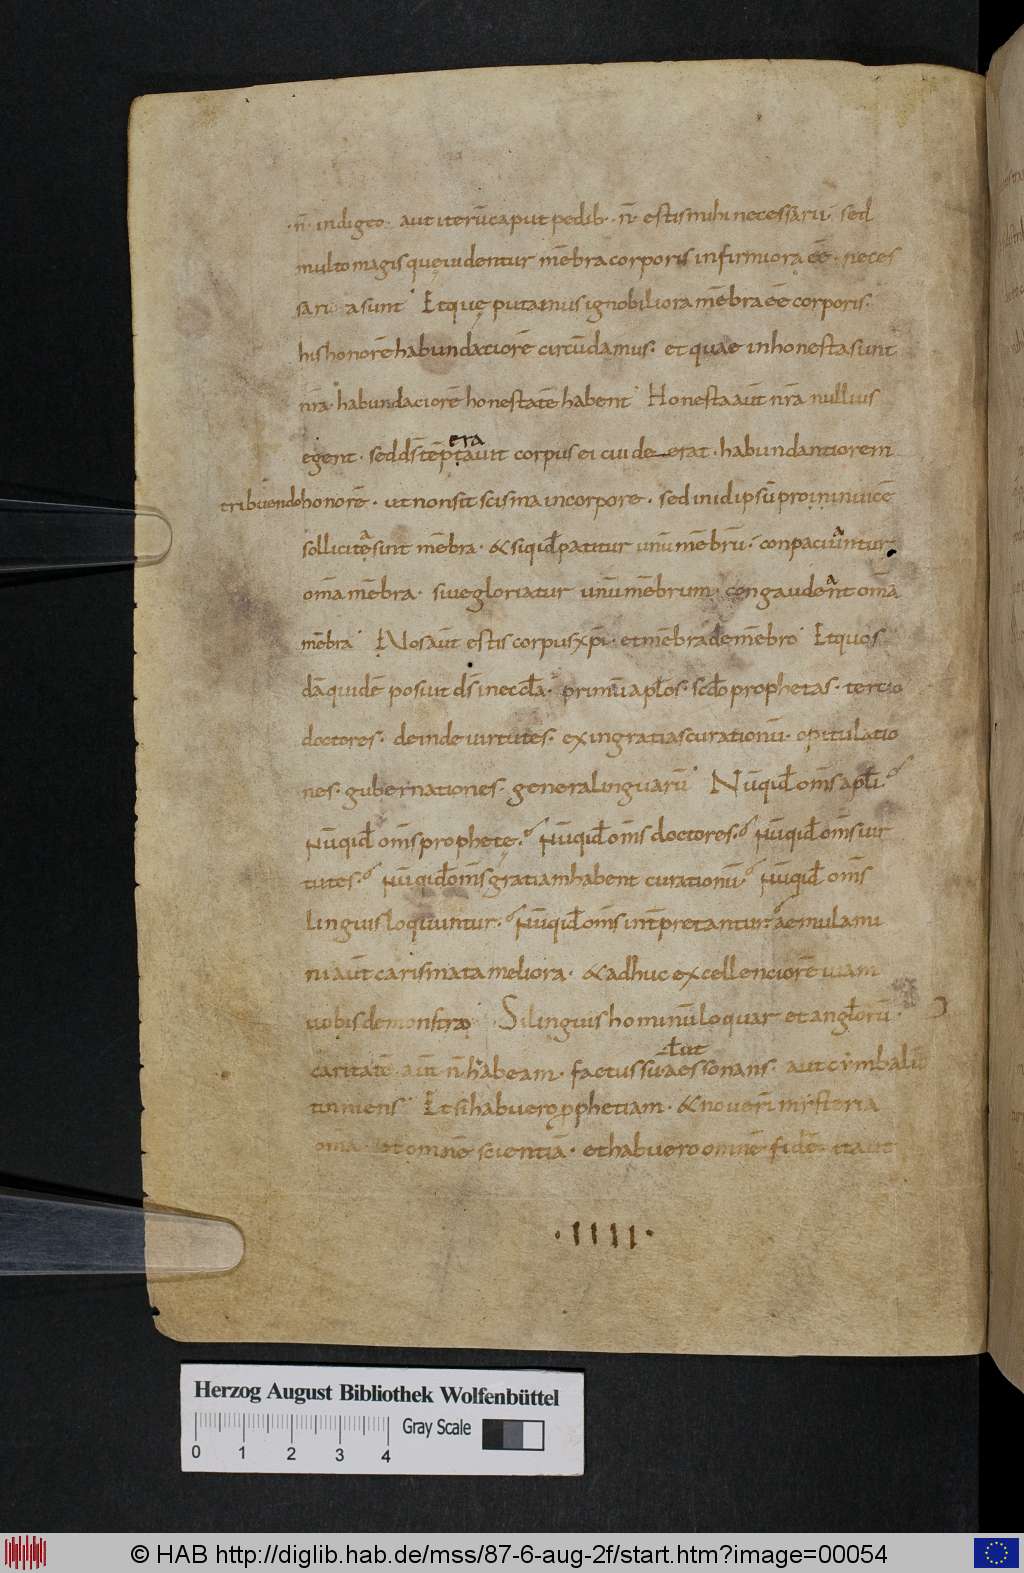 ·n̄· indigeo· aut iterū caput pedib· n̄· estis mihi necessarii· sed
multo magis quę uidentur mēbra corporis infirmiora eē· neces
saria sunt· Et quę putamus ignobiliora mēbra eē corporis·
his honorē habundatiorē circūdamus· et quae inhonesta sunt
nr̄a· habundaciorē honestatē habent· Honesta aut̄ nr̄a nullius
egent· sed ds̄ tēptauit corpus ei cui de erat· habundantiorem
era
tribuendo honorē· ut non sit scisma in corpore· sed in id ipsū pro inuicē
sollicitę sint mēbra· & siquid patitur unū mēbrū· conpaciuntur
a
a
om̄a mēbra· siue gloriatur unū mēbrum· congaudent om̄a
a
mēbra· Nos aut̄ estis corpus xp̄i· et mēbra de mēbro· Et quos
dā quidē posiut ds̄ in eccl̄a· primū apl̄os· scd̄o prophetas· tercio
doctores· deinde uirtutes· exin gratias curationū· opitulatio
nes· gubernationes· genera linguarū· Nūquid om̄s apl̄i·
nūquid om̄s prophetę· nūquid om̄s doctores· nūquid om̄s uir
tutes· nūquid om̄s gratiam habent curationū· nūquid om̄s
linguis loquuntur· nūquid om̄s int̄pretantur· aemulami
ni aut̄ carismata meliora· & adhuc excellenciorē uiam
uobis demonstro· Si linguis hominū loquar et angl̄orū·
caritatē aut̄ n̄ habeam· factus sū aes sonans· aut cymbalū
ł ut
tinniens· Et si habuero prophetiam· & nouerī mysteria
om̄a· et omnē scientiā· et habuero omnē fidē· ita ut
·IIII·
Herzog August Bibliothek Wolfenbüttel
Gray Scale
0 1 2 3 4
© HAB http://diglib.hab.de/mss/87-6-aug-2f/start.htm?image=00054